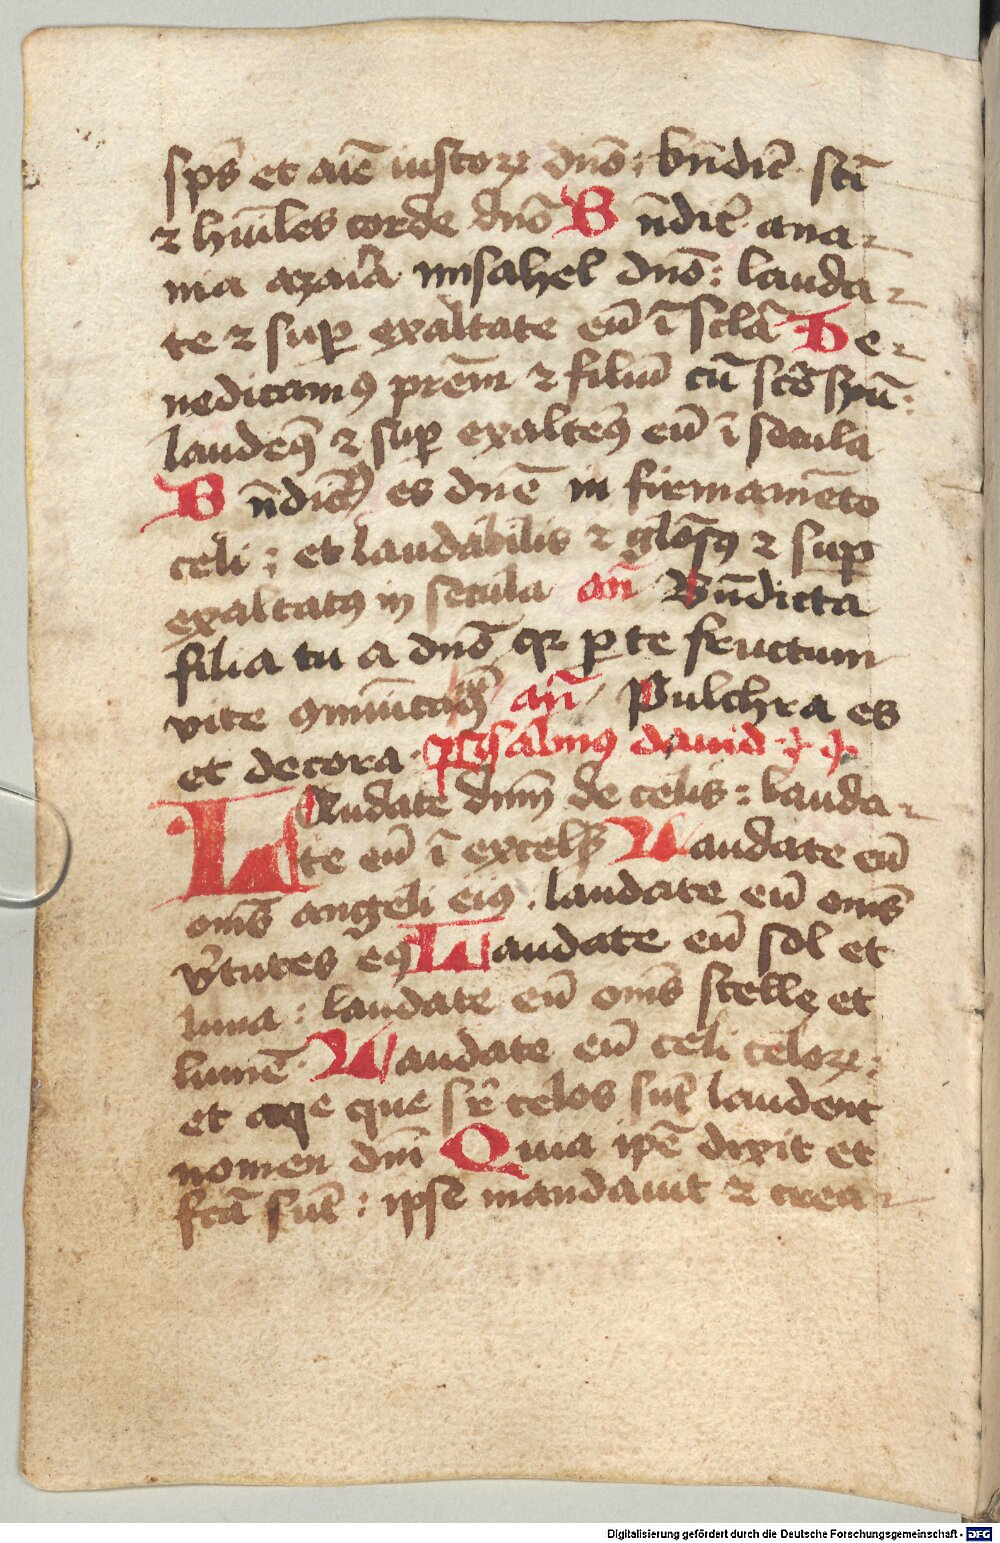 sps̄ et aīe iustoꝝ dn̄o : bn̄dic̄ . sc̄i
⁊ hūiles corde dn̄o Bn̄dic̄ . ana-
nia azaīa misahel dn̄o : lauda-
te ⁊ suꝑ exaltate eū ī sc̄la Be-
nedicamꝰ prēm ⁊ filiū cū sc̄o spū :
laudemꝰ ⁊ suꝑ exaltemꝰ eū ī secula
Bn̄dictꝰ es dn̄e in firmamēto
celi ; et laudabilis ⁊ glōsꝰ ⁊ suꝑ
exaltatꝰ in secula an̄ Bn̄dicta
filia tu a dn̄o qꝛ ꝑ te fructum
vite ꝯmūicaꝰ an̄ Pulchra es
et decora . Psalmꝰ dauid
LAudate dn̄m de celis : lauda-
te eū ī excelsꝭ Laudate eū
om̄s angeli eiꝰ . laudate eū om̄s
v̄tutes eiꝰ Laudate eū sol et
luna : laudate eū om̄s stelle et
lumē . Laudate eū celi celoꝝ :
et aqe que sr̄ celos sūt laudent
nomen dn̄i Quia ip̄e dixit et
fc̄a sūt : ipse mandauit ⁊ crea-
Digitalisierung gefördert durch die Deutsche Forschungsgemeinschaft - DFG